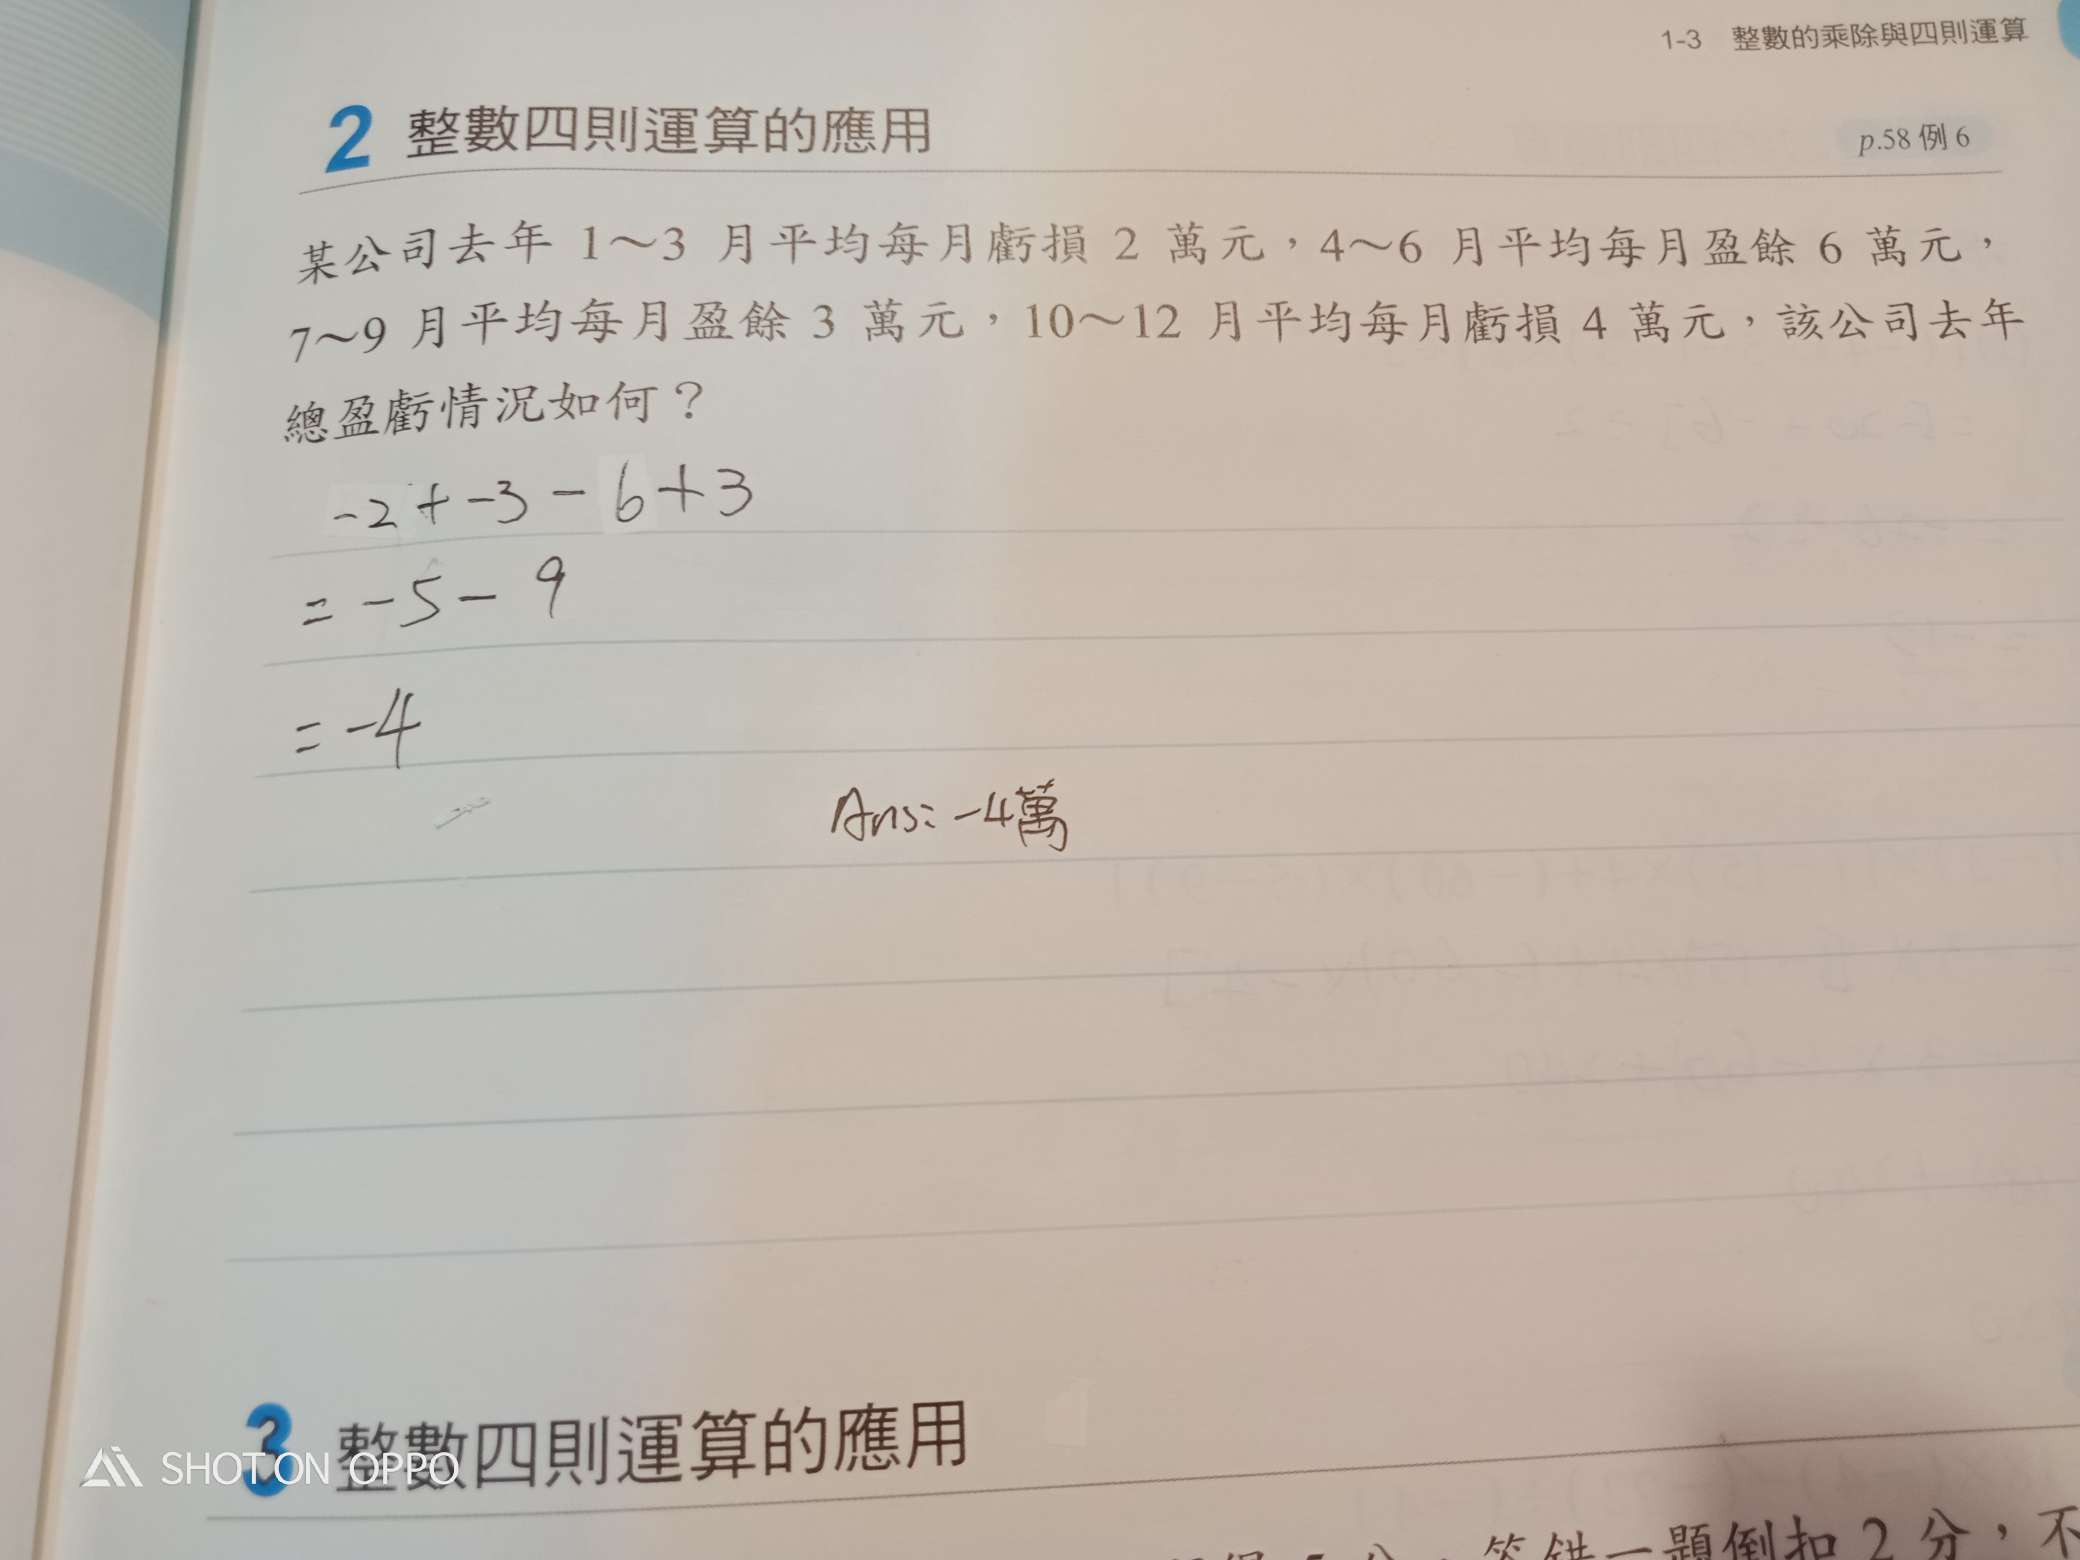 1-3 整數的乘除與四則運算
2 整數四則運算的應用
p.58 例 6
某公司去年 1～3 月平均每月虧損 2 萬元，4～6 月平均每月盈餘 6 萬元，
7～9 月平均每月盈餘 3 萬元，10～12 月平均每月虧損 4 萬元，該公司去年
總盈虧情況如何？
-2+-3-6+3
=-5-9
=-4
Ans:-4萬
3 整數四則運算的應用
SHOT ON OPPO
分，答錯一題倒扣 2 分，不